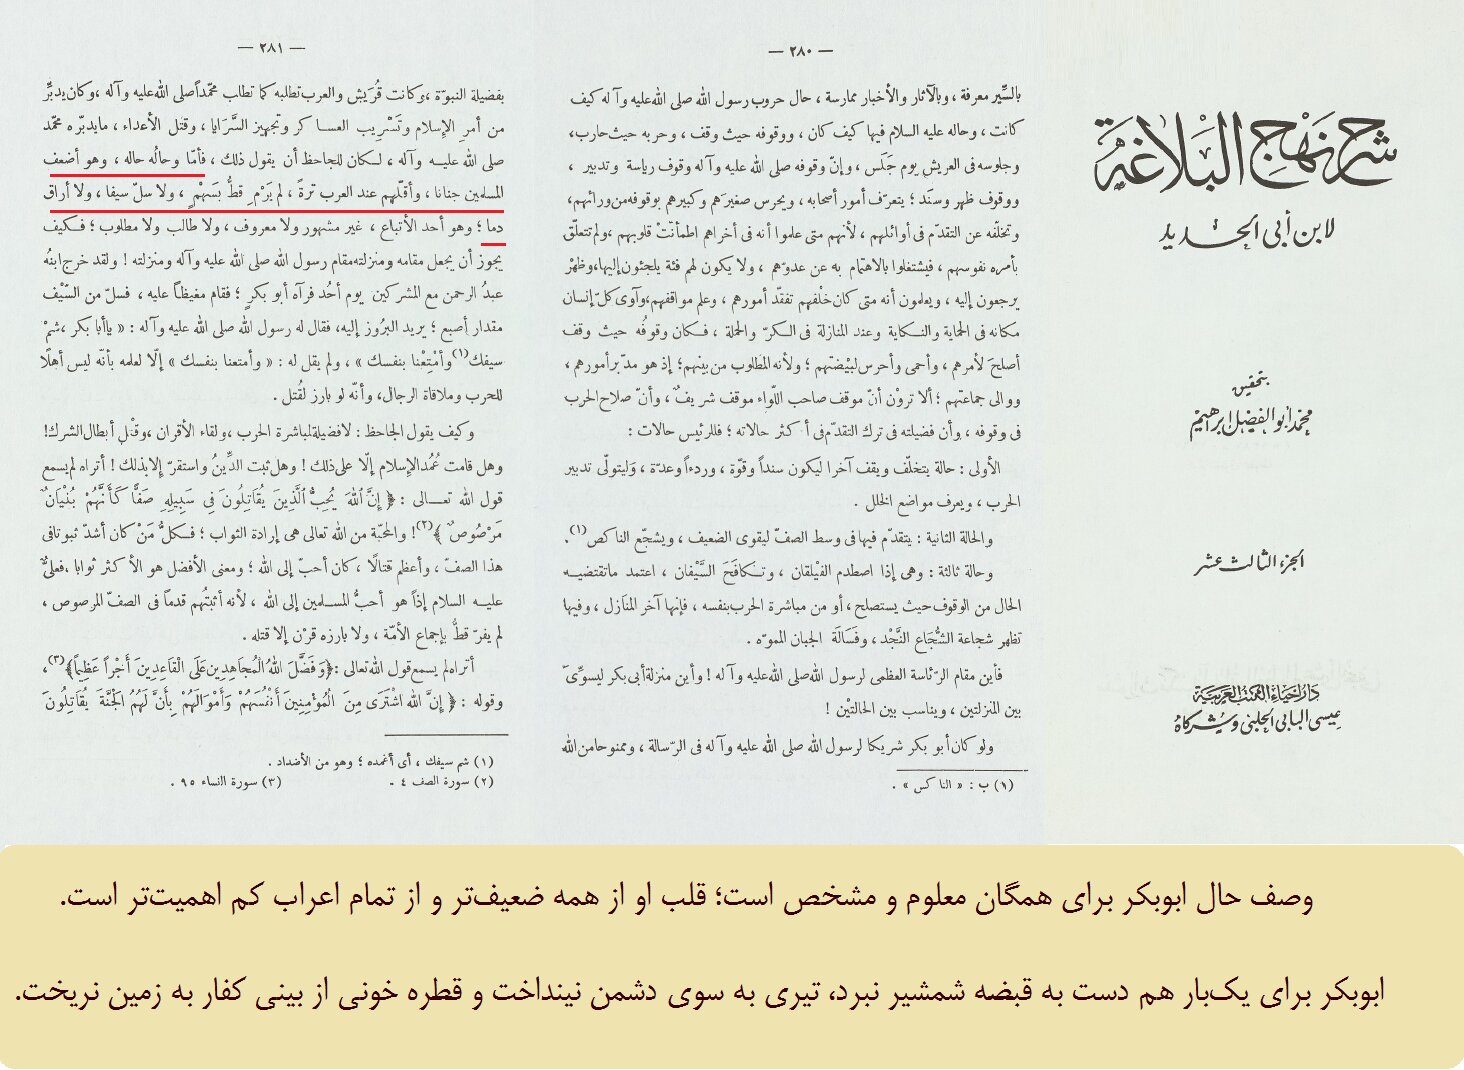 شرح نهج البلاغة
لابن أبى الحديد
بتحقيق
محمد أبو الفضل إبراهيم
الجزء الثالث عشر
دار إحياء الكتب العربية
عيسى البابى الحلبى وشركاه
— ٢٨٠ —
بالسِّير معرفة ، وبالآثار والأخبار ممارسة ، حال حروب رسول الله صلى الله عليه وآله كيف
كانت ، وحاله عليه السلام فيها كيف كان ، ووقوفه حيث وقف ، وحربه حيث حارب،
وجلوسه فى العريش يوم جَلَس ، وإنّ وقوفه صلى الله عليه وآله وقوف رياسة وتدبير ،
ووقوف ظهر وسَنَد ؛ يتعرّف أمور أصحابه ، ويحرس صغيرَهم وكبيرهم بوقوفه من ورائهم،
وتخلّفه عن التقدّم فى أوائلهم ، لأنهم متى علموا أنه فى أخراهم اطمأنّت قلوبهم ،ولم تتعلّق
بأمره نفوسهم ، فيشتغلوا بالاهتمام به عن عدوّهم ، ولا يكون لهم فئة يلجئون إليها،وظهْر
يرجعون إليه ، ويعلمون أنه متى كان خلْفهم تفقّد أمورهم ، وعلم مواقفهم،وآوى كلّ إنسان
مكانه فى الحماية والنكاية وعند المنازلة فى الكرّ والحملة ، فكان وقوفُه حيث وقف
أصلحَ لأمرهم ، وأحمى وأحرس لبيْضتهم ؛ ولأنه المطلوب من بينهم؛ إذ هو مدّبر أمورهم ،
ووالى جماعتهم ؛ ألا ترونْ أنّ موقف صاحب اللّواء موقف شريفٌ ، وأنّ صلاح الحرب
فى وقوفه ، وأن فضيلته فى ترك التقدّم فى أكثر حالاته ؛ فللرئيس حالات :
الأولى : حالة يتخلّف ويقف آخرا ليكون سنداً وقوّة ، وردءاً وعدّة ، وليتولّى تدبير
الحرب ، ويعرف مواضع الخلل .
والحالة الثانية : يتقدّم فيها فى وسط الصفّ ليقوى الضعيف ، ويشجّع الناكص(١).
وحالة ثالثة : وهى إذا اصطدم الفيْلقان ، وتكافَحَ السَّيْفان ، اعتمد ما تقتضيه
الحال من الوقوف حيث يستصلح ، أو من مباشرة الحرب بنفسه ، فإنها آخر المنازل ، وفيها
تظهر شجاعة الشُّجاع النَّجْد ، وفَسَالَة الجبان المموّه .
فأين مقام الرّئاسة العظمى لرسول الله صلى الله عليه وآله ! وأين منزلة أبى بكر ليسوّىَ
بين المنزلتين ، ويناسب بين الحالتين !
ولو كان أبو بكر شريكا لرسول الله صلى الله عليه وآله فى الرّسالة ، وممنوحا من الله
(١) ب : « الناكس » .
— ٢٨١ —
بفضيلة النبوّة ،وكانت قُرَيش والعرب تطلبه كما تطلب محمّداً صلى الله عليه وآله ،وكان يدبِّر
من أمر الإسلام وتَسْرِيب العساكر وتجهيز السَّرَايا ، وقتل الأعداء ، ما يدبّره محمّد
صلى الله عليه وآله ، لكان للجاحظ أن يقول ذلك ، فأمّا وحالُه حاله ، وهو أضعف
المسلمين جنانا ، وأقلّهم عند العرب ترةً ، لم يَرْمِ قطُّ بسَهْمٍ ، ولا سلّ سيفا ، ولا أراق
دما ؛ وهو أحد الأتباع ، غير مشهور ولا معروف ، ولا طالب ولا مطلوب ؛ فكيف
يجوز أن يجعل مقامه ومنزلته مقام رسول الله صلى الله عليه وآله ومنزلته ! ولقد خرج ابنُه
عبدُ الرحمن مع المشركين يوم أحُد فرآه أبو بكرٍ ؛ فقام مغيظاً عليه ، فسلّ من السَّيْف
مقدار أصبع ؛ يريد البرُوز إليه، فقال له رسول الله صلى الله عليه وآله : « ياأبا بكر ،شمْ
سيفك(١) وأمْتِعْنا بنفسك » ، ولم يقل له : « وأمتعنا بنفسك » إلّا لعلمه بأنّه ليس أهلًا
للحرب وملاقاة الرجال، وأنّه لو بارز لقُتل .
وكيف يقول الجاحظ : لا فضيلة لمباشرة الحرب ،ولقاء الأقران ،وقتل أبطال الشرك!
وهل قامت عُمُد الإسلام إلّا على ذلك ! وهل ثبت الدِّينُ واستقرّ إلا بذلك ! أتراه لم يسمع
قول الله تعالى : ﴿ إِنَّ اللهَ يُحِبُّ الَّذِينَ يُقَاتِلُونَ فِى سَبِيلِهِ صَفًّا كَأَنَّهُمْ بُنْيَانٌ
مَرْصُوصٌ ﴾(٢)! والمحبّة من الله تعالى هى إرادة الثواب ؛ فكلُّ مَنْ كان أشدّ ثبوتا فى
هذا الصفّ ، وأعظم قتالًا ، كان أحبّ إلى الله ؛ ومعنى الأفضل هو الأكثر ثوابا ،فعلىٌّ
عليه السلام إذاً هو أحبُّ المسلمين إلى الله ، لأنه أثبتُهم قدماً فى الصفّ المرصوص ،
لم يفرّ قطُّ بإجماع الأمّة ، ولا بارزه قرْن إلا قتله .
أتراه لم يسمع قول الله تعالى :﴿وَفَضَّلَ اللهُ الْمُجَاهِدِينَ عَلَى الْقَاعِدِينَ أَجْراً عَظِيماً﴾(٣)،
وقوله :﴿ إِنَّ اللهَ اشْتَرَى مِنَ الْمُؤْمِنِينَ أَنْفُسَهُمْ وَأَمْوَالَهُمْ بِأَنَّ لَهُمُ الْجَنَّةَ يُقَاتِلُونَ
(١) شم سيفك ، أى أغمده ؛ وهو من الأضداد .
(٢) سورة الصف ٤ - (٣) سورة النساء ٩٥ .
وصف حال ابوبکر برای همگان معلوم و مشخص است؛ قلب او از همه ضعیف‌تر و از تمام اعراب کم اهمیت‌تر است.
ابوبکر برای یک‌بار هم دست به قبضه شمشیر نبرد، تیری به سوی دشمن نینداخت و قطره خونی از بینی کفار به زمین نریخت.